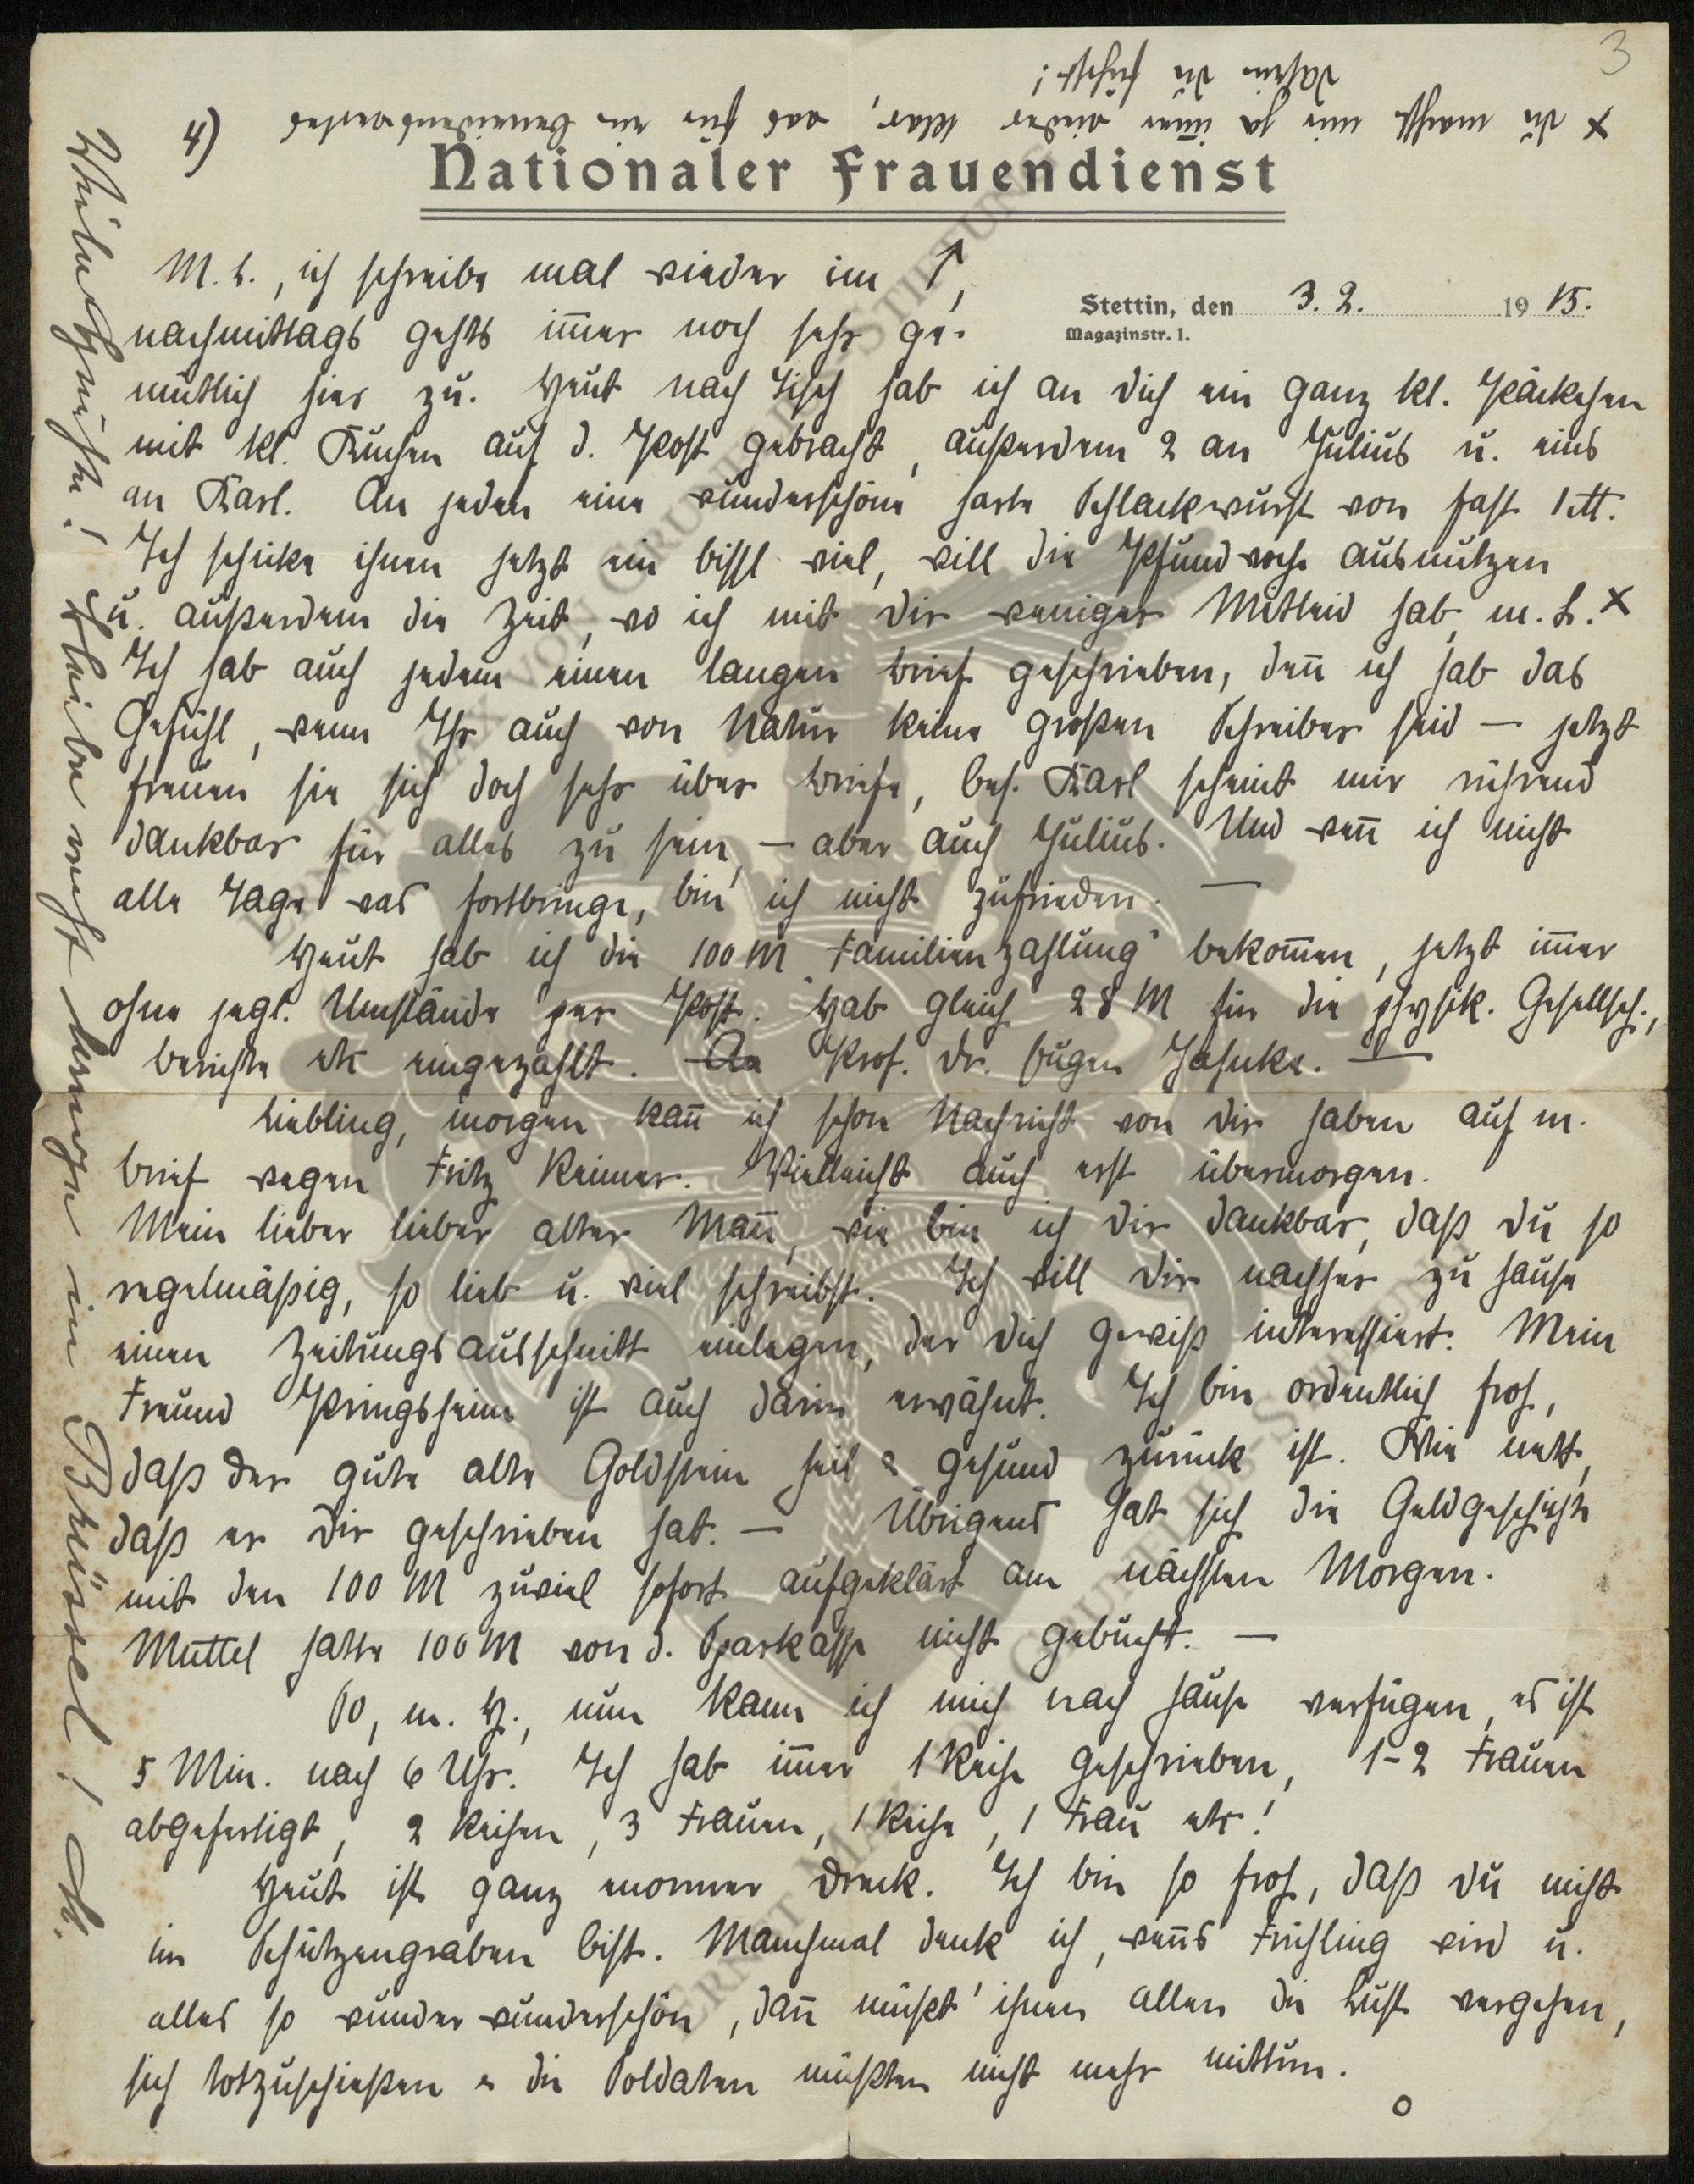 3
x Du machst mir ja immer wieder klar, was für ein Beneidenswertes
Dasein Du führst!
4)
Nationaler Frauendienst
Stettin, den 3. 2. 1915.
Magazinstr. 1.
M. L., ich schreibe mal wieder im ↑,
nachmittags gehts im̅er noch sehr ge-
mütlich hier zu. Heut nach Tisch hab ich an Dich ein ganz kl. Päckchen
mit kl. Kuchen auf d. Post gebracht, außerdem 2 an Julius u. eins
an Karl. An jeden eine wunderschöne harte Schlackwurst von fast 1 ℔.
Ich schicke ihnen jetzt ein bissl viel, will die Pfundwoche ausnutzen
u. außerdem die Zeit, wo ich mit Dir weniger Mitleid hab, m. L. x
Ich hab auch jedem einen langen Brief geschrieben, den̅ ich hab das
Gefühl, wenn Ihr auch von Natur keine großen Schreiber seid — jetzt
freuen sie sich doch sehr über Briefe, bes. Karl scheint mir rührend
dankbar für alles zu sein, — aber auch Julius. Und wen̅ ich nicht
alle Tage was fortbringe, bin ich nicht zufrieden. —
Heut hab ich die 100 M „Familienzahlung" bekom̅en, jetzt im̅er
ohne jegl. Umstände per Post. Hab gleich 28 M für die physik. Gesellsch.,
berichte etc eingezahlt. An Prof. Dr. Eugen Jahnke. —
Liebling, morgen kan̅ ich schon Nachricht von Dir haben auf m.
Brief wegen Fritz Reimer. Vielleicht auch erst übermorgen.
Mein lieber lieber alter Man̅, wie bin ich Dir dankbar, daß Du so
regelmäßig, so lieb u. viel schreibst. Ich will Dir nachher zu Hause
einen Zeitungsausschnitt einlegen, der Dich gewiß interessiert. Mein
Freund Pringsheim ist auch darin erwähnt. Ich bin ordentlich froh,
daß der gute alte Goldstein heil & gesund zurück ist. Wie nett,
daß er Dir geschrieben hat. — Übrigens hat sich die Geldgeschichte
mit den 100 M zuviel sofort aufgeklärt am nächsten Morgen.
Muttel hatte 100 M von d. Sparkasse nicht gebucht. —
So, m. H., nun kann ich mich nach Hause verfügen, es ist
5 Min. nach 6 Uhr. Ich hab im̅er 1 Reihe geschrieben, 1-2 Frauen
abgefertigt, 2 Reihen, 3 Frauen, 1 Reihe, 1 Frau etc!
Heut ist ganz enormer Dreck. Ich bin so froh, daß Du nicht
im Schützengraben bist. Manchmal denk ich, wen̅s Frühling wird u.
alles so wunder wunderschön, dan̅ müßt' ihnen allen die Lust vergehen,
sich totzuschießen & die Soldaten müßten nicht mehr mittun.
Viele Grüße! Bleibe nicht hungrig in Brüssel! M.
ERNST MAX VON GRUNELIUS-STIFTUNG
ERNST MAX VON GRUNELIUS-STIFTUNG